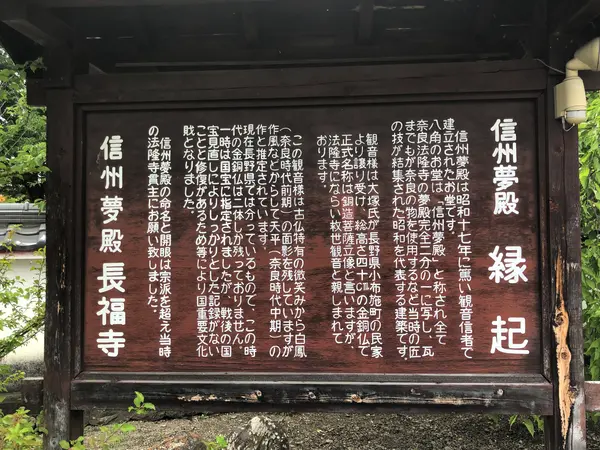 信州夢殿 縁起
信州夢殿は昭和十七年に篤い観音信者で
建立されたお堂です。
八角のお堂は「信州夢殿」と称され全て
奈良法隆寺の夢殿完全二分の一に写し、瓦
までもが奈良の物を使用するなど当時の匠
の技が結集された昭和を代表する建築です。
観音様は大塚氏が長野県小布施町の民家
より譲り受け、総高さ四十㎝の金銅仏で
正式名称は銅造菩薩立像と言いますが、
法隆寺にならい救世観音と親しまれて
おります。
この観音様は古仏特有の微笑みから白鳳
（奈良時代前期）の面影を残していますが
作風などからして天平（奈良時代中期）の
作と推定されています。
現在長野県では分っているもので、この時
代の金銅仏は二体しか残っておりません。
一時は国宝に指定されましたが、戦後の国
宝見直しによりしっかりとした記録がない
ことと修復があるため等により国重要文化
財となりました。
信州夢殿の命名と開眼は宗派を超え当時
の法隆寺貫主にお願い致しました。
信州夢殿 長福寺